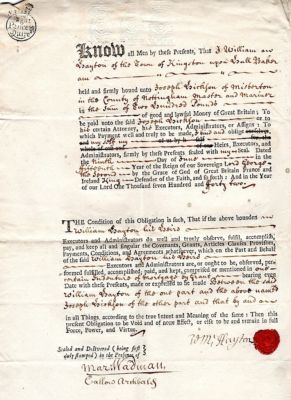 Know all Men by these Presents, That I William
of the Town of Kingston upon Hull Baker
am
held and firmly bound unto Joseph of Misterton
in the County of Nottingham Master and Mariner
in the Sum of Two Hundred Pounds
of good and lawful Money of Great Britain; To
be paid unto the said Joseph or to
his certain Attorney, his Executors, Administrators or Assigns: To
which Payment well and truly to be made, I bind and oblige
my Heirs, Executors and
Administrators, firmly by these Presents, sealed with my Seal. Dated
the Ninth Day of June in the
Fifteenth Year of the Reign of our Sovereign Lord George
the Second by the Grace of God of Great Britain France and
Ireland King Defender of the Faith, and so forth: And in the Year
of our Lord One Thousand seven Hundred and Forty two.
THE Condition of this Obligation is such, That if the above bounden
William his Heirs
Executors and Administrators do well and truly observe, fulfil, accomplish,
pay, and keep all and singular the Covenants, Grants, Articles Clauses Provisoes,
Payments, Conditions, and Agreements whatsoever, which on the Part and Behalf
of the said William his Heirs
Executors and Administrators are, or ought to be, observed, per-
formed fulfilled, accomplished, paid, and kept, comprised or mentioned in one
certain Indenture of Mortgage by Grant bearing even
Date with these Presents, made or expressed to be made Between the said
William of the one part and the above named
Joseph of the other part and that by and
in all Things, according to the true Intent and Meaning of the same: Then this
present Obligation to be Void and of none Effect, or else to be and remain in full
Force, Power, and Virtue.
Wm
Sealed and Delivered (being first
duly stamped) in the Presence of